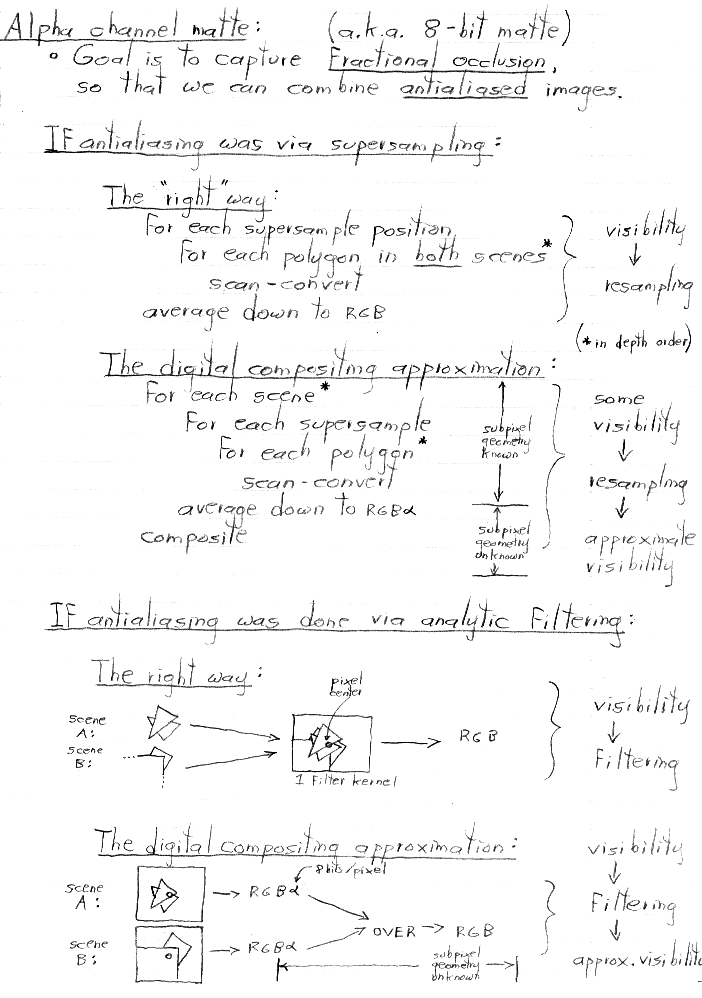 Alpha channel matte: (a.k.a. 8-bit matte)
• Goal is to capture Fractional occlusion,
so that we can combine antialiased images.
IF antialiasing was via supersampling:
The "right" way:
For each supersample position,
For each polygon in both scenes*
scan-convert
average down to RGB
visibility
↓
resampling
(* in depth order)
The digital compositing approximation:
For each scene*
For each supersample
For each polygon*
scan-convert
average down to RGBα
composite
subpixel
geometry
known
subpixel
geometry
unknown
some
visibility
↓
resampling
↓
approximate
visibility
IF antialiasing was done via analytic Filtering:
The right way:
scene
A:
scene
B:
pixel
center
1 Filter kernel
→ RGB
visibility
↓
Filtering
The digital compositing approximation:
scene
A:
→ RGBα
8bits/pixel
scene
B:
→ RGBα
OVER → RGB
subpixel
geometry
unknown
visibility
↓
Filtering
↓
approx. visibility